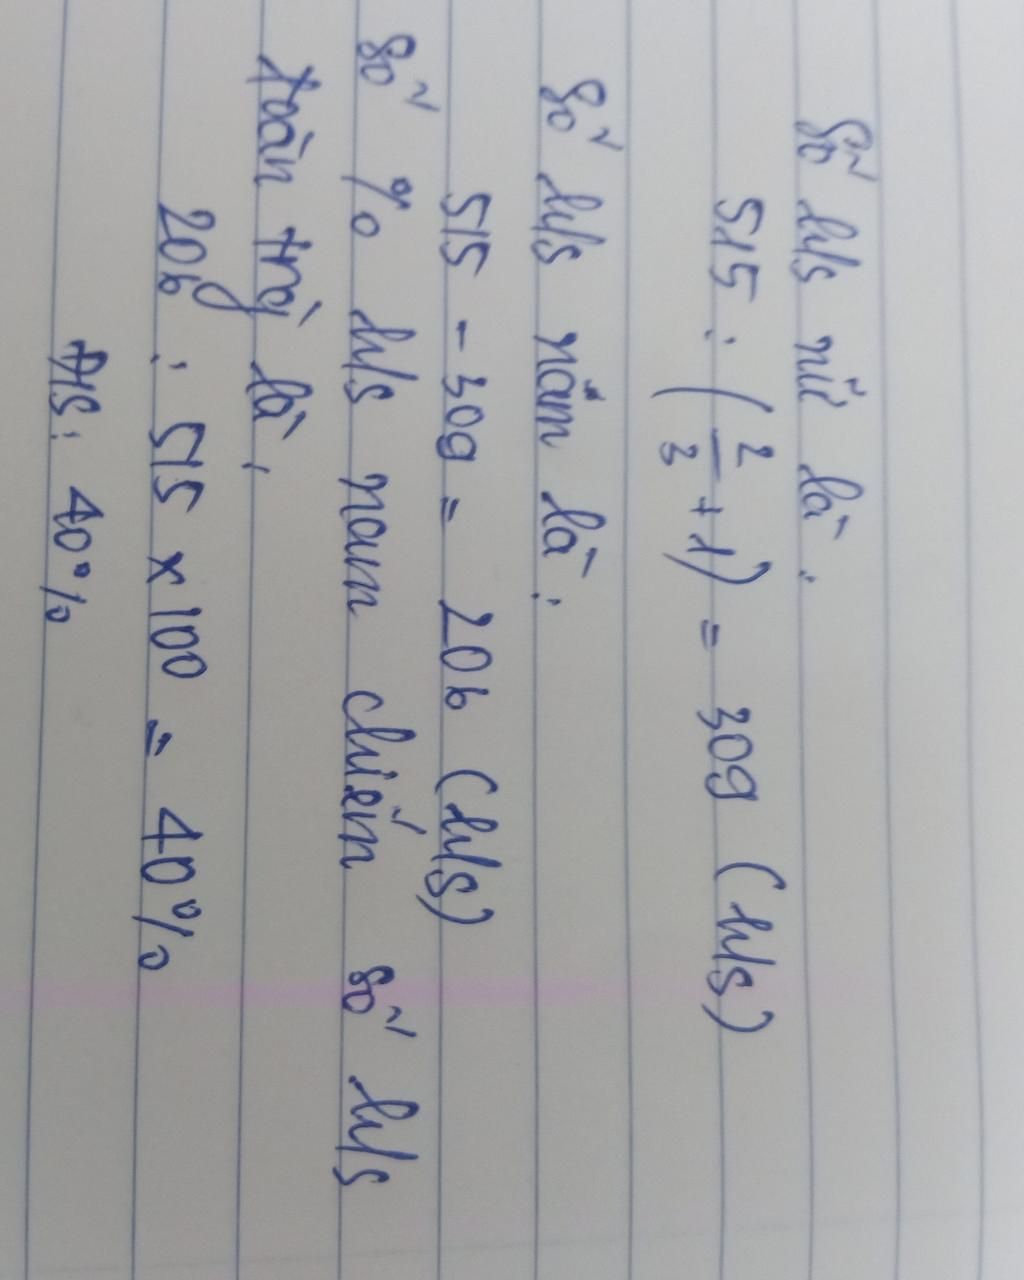 Số h/s nữ là:
515 : (2/3 + 1) = 309 (h/s)
Số h/s năm là:
515 - 309 = 206 (h/s)
Số % h/s nam chiếm số h/s
toàn trg là:
206 : 515 x 100 = 40%
Đ/S: 40%